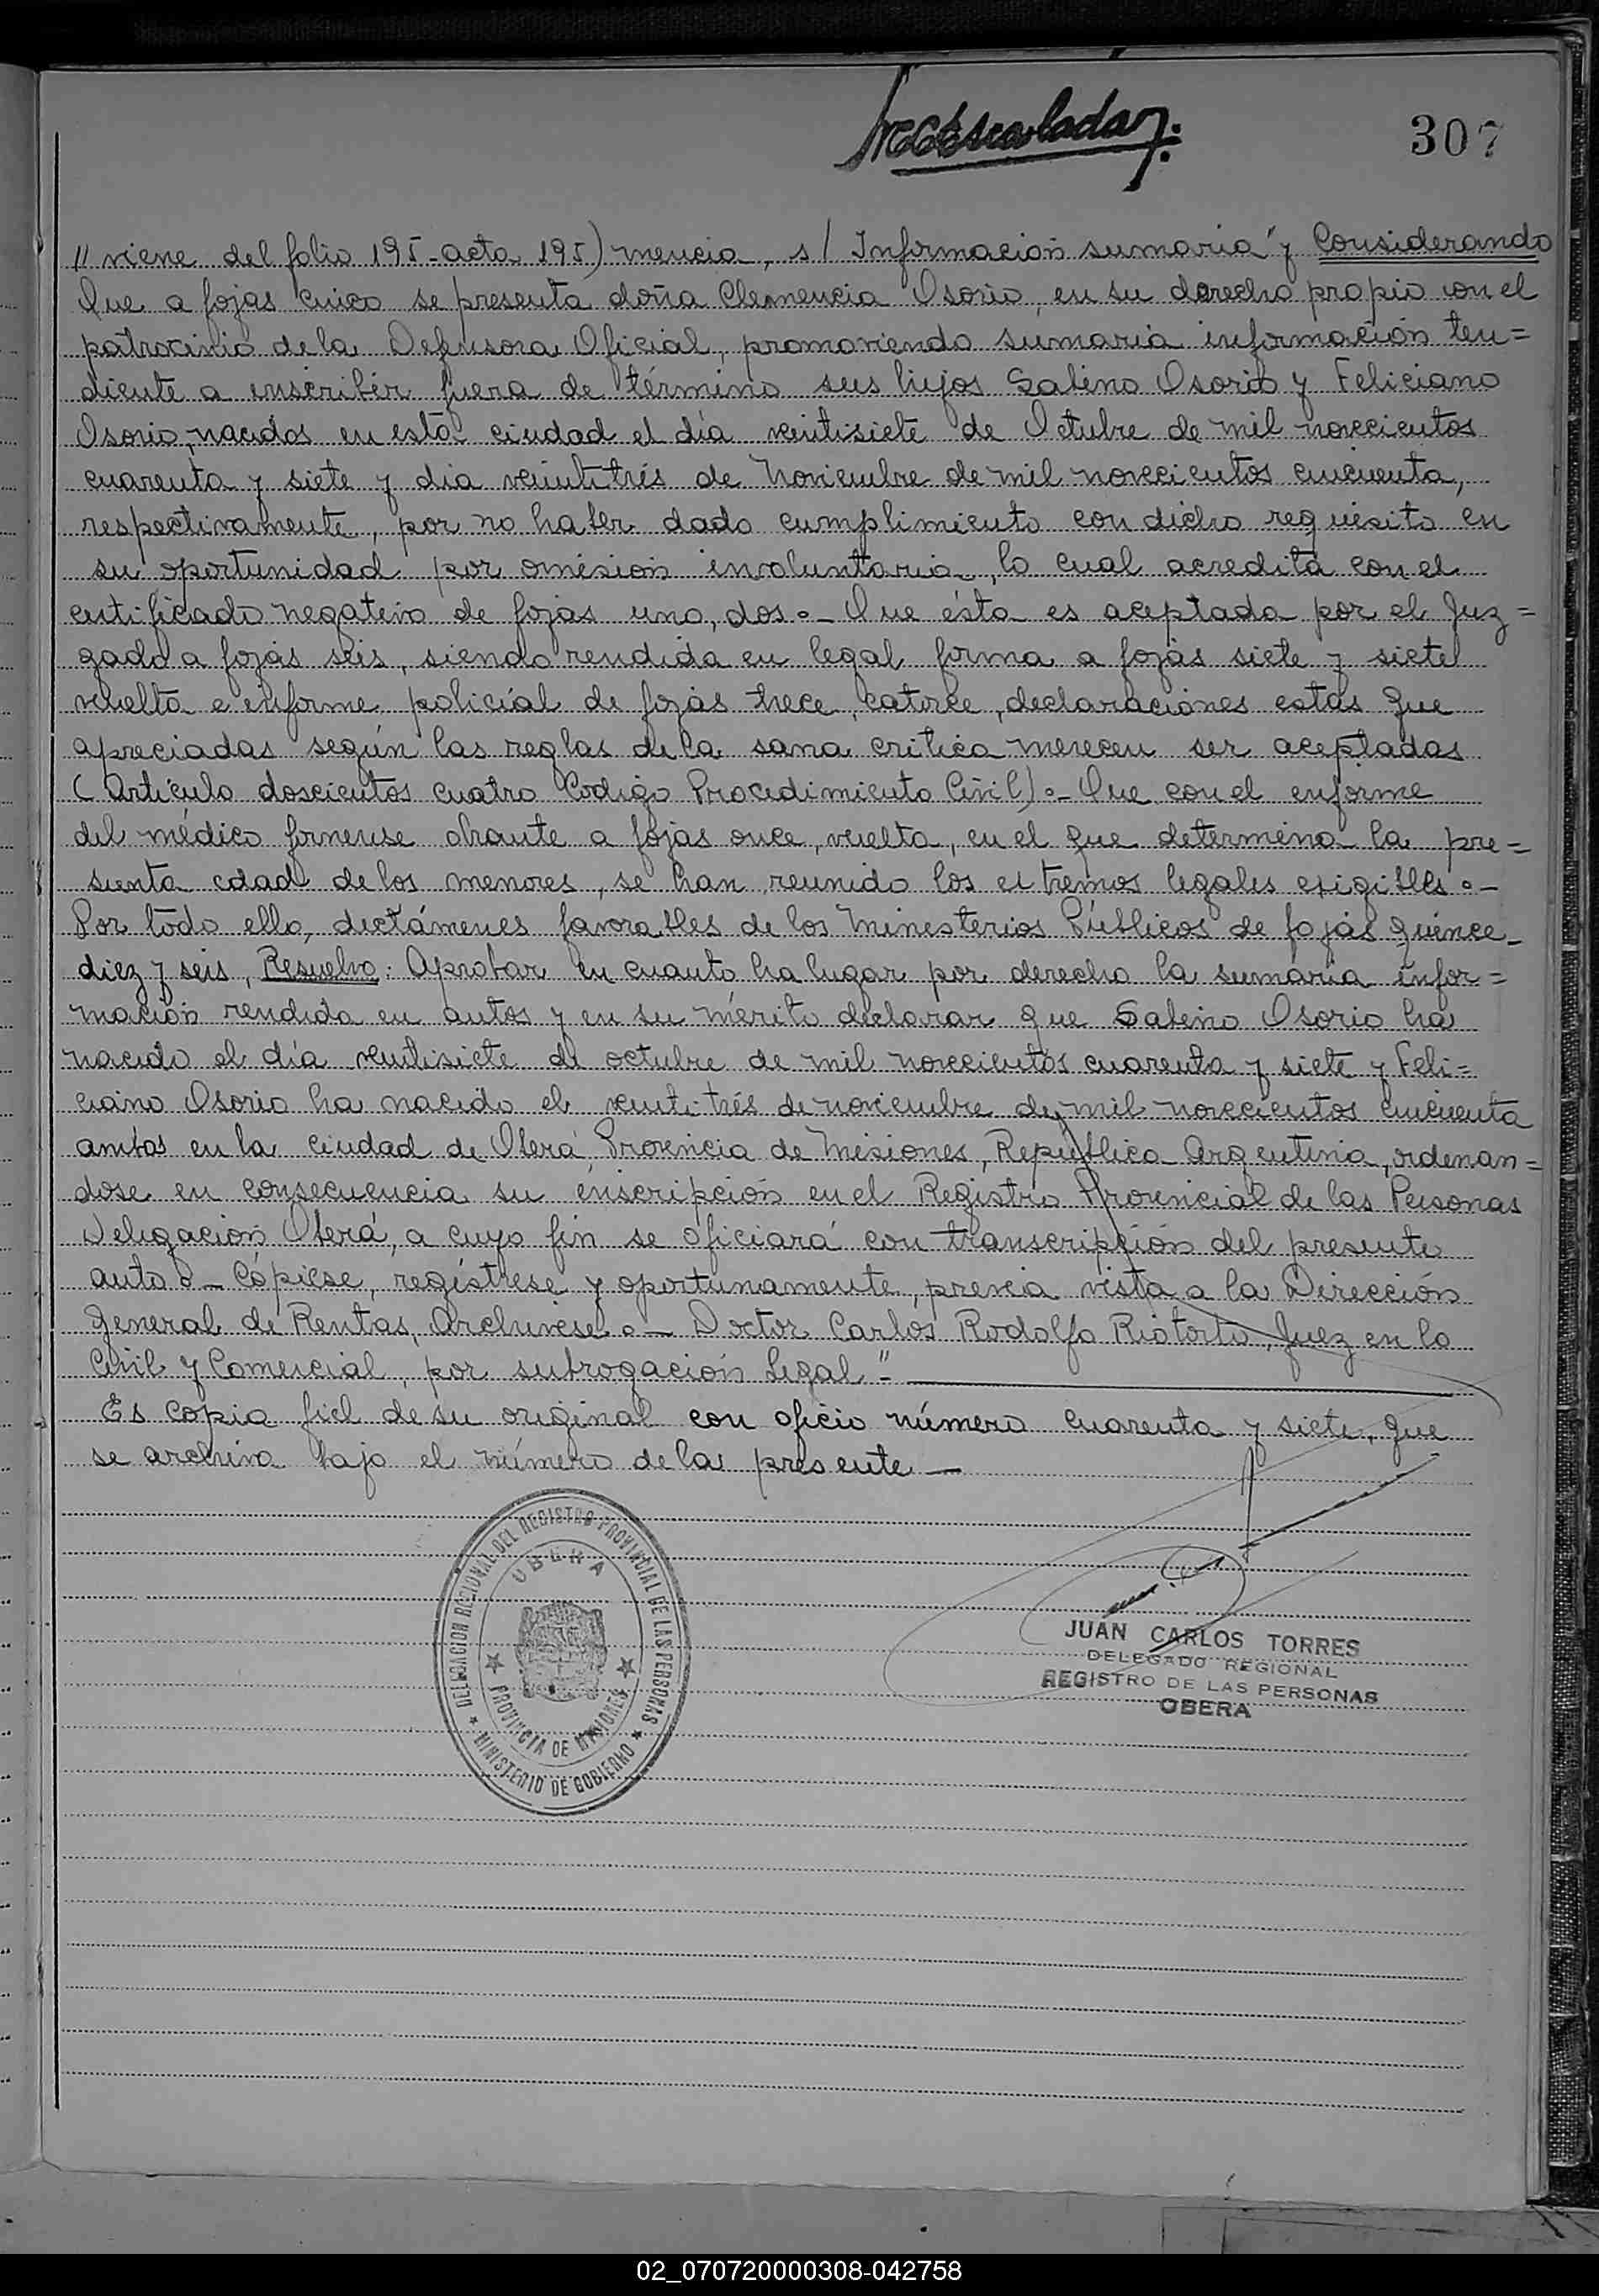 307
"viene del folio 195-acta 195) mencia, s/ Información sumaria" y Considerando
Que a fojas cinco se presenta doña Clemencia Osorio, en su derecho propio con el
patrocinio de la Defensora Oficial, promoviendo sumaria información ten=
diente a inscribir fuera de término sus hijos Sabino Osorio y Feliciano
Osorio, nacidos en esta ciudad el día veintisiete de Octubre de mil novecientos
cuarenta y siete y dia veintitrés de Noviembre de mil novecientos cincuenta,
respectivamente, por no haber dado cumplimiento con dicho requisito en
su oportunidad por omisión involuntaria, lo cual acredita con el
certificado negativo de fojas uno, dos.- Que ésta es aceptada por el Juz=
gado a fojas seis, siendo rendida en legal forma a fojas siete y siete
vuelta e informe policial de fojas trece, catorce, declaraciones estas que
apreciadas según las reglas de la sana crítica merecen ser aceptadas
(Artículo doscientos cuatro Codigo Procedimiento Civil).- Que con el informe
del médico forense obrante a fojas once, vuelta, en el que determina la pre-
sunta edad de los menores, se han reunido los extremos legales exigibles.-
Por todo ello, dictámenes favorables de los Ministerios Públicos de fojas quince-
diez y seis, Resuelvo: Aprobar en cuanto ha lugar por derecho la sumaria infor=
mación rendida en autos y en su mérito declarar que Sabino Osorio ha
nacido el día veintisiete de octubre de mil novecientos cuarenta y siete y Feli=
ciano Osorio ha nacido el veintitrés de noviembre de mil novecientos cincuenta
ambos en la ciudad de Oberá, Provincia de Misiones, República Argentina, ordenan=
dose en consecuencia su inscripción en el Registro Provincial de las Personas
Delegación Oberá, a cuyo fin se oficiará con transcripción del presente
auto.- Cópiese, regístrese y oportunamente, previa vista a la Dirección
General de Rentas, Archívese.- Doctor Carlos Rodolfo Riotorto, Juez en lo
Civil y Comercial, por subrogación Legal"-
Es copia fiel de su original con oficio número cuarenta y siete, que
se archiva bajo el número de la presente-
DELEGACION REGIONAL DEL REGISTRO PROVINCIAL DE LAS PERSONAS
OBERA
PROVINCIA DE MISIONES
MINISTERIO DE GOBIERNO
JUAN CARLOS TORRES
DELEGADO REGIONAL
REGISTRO DE LAS PERSONAS
OBERA
02_070720000308-042758